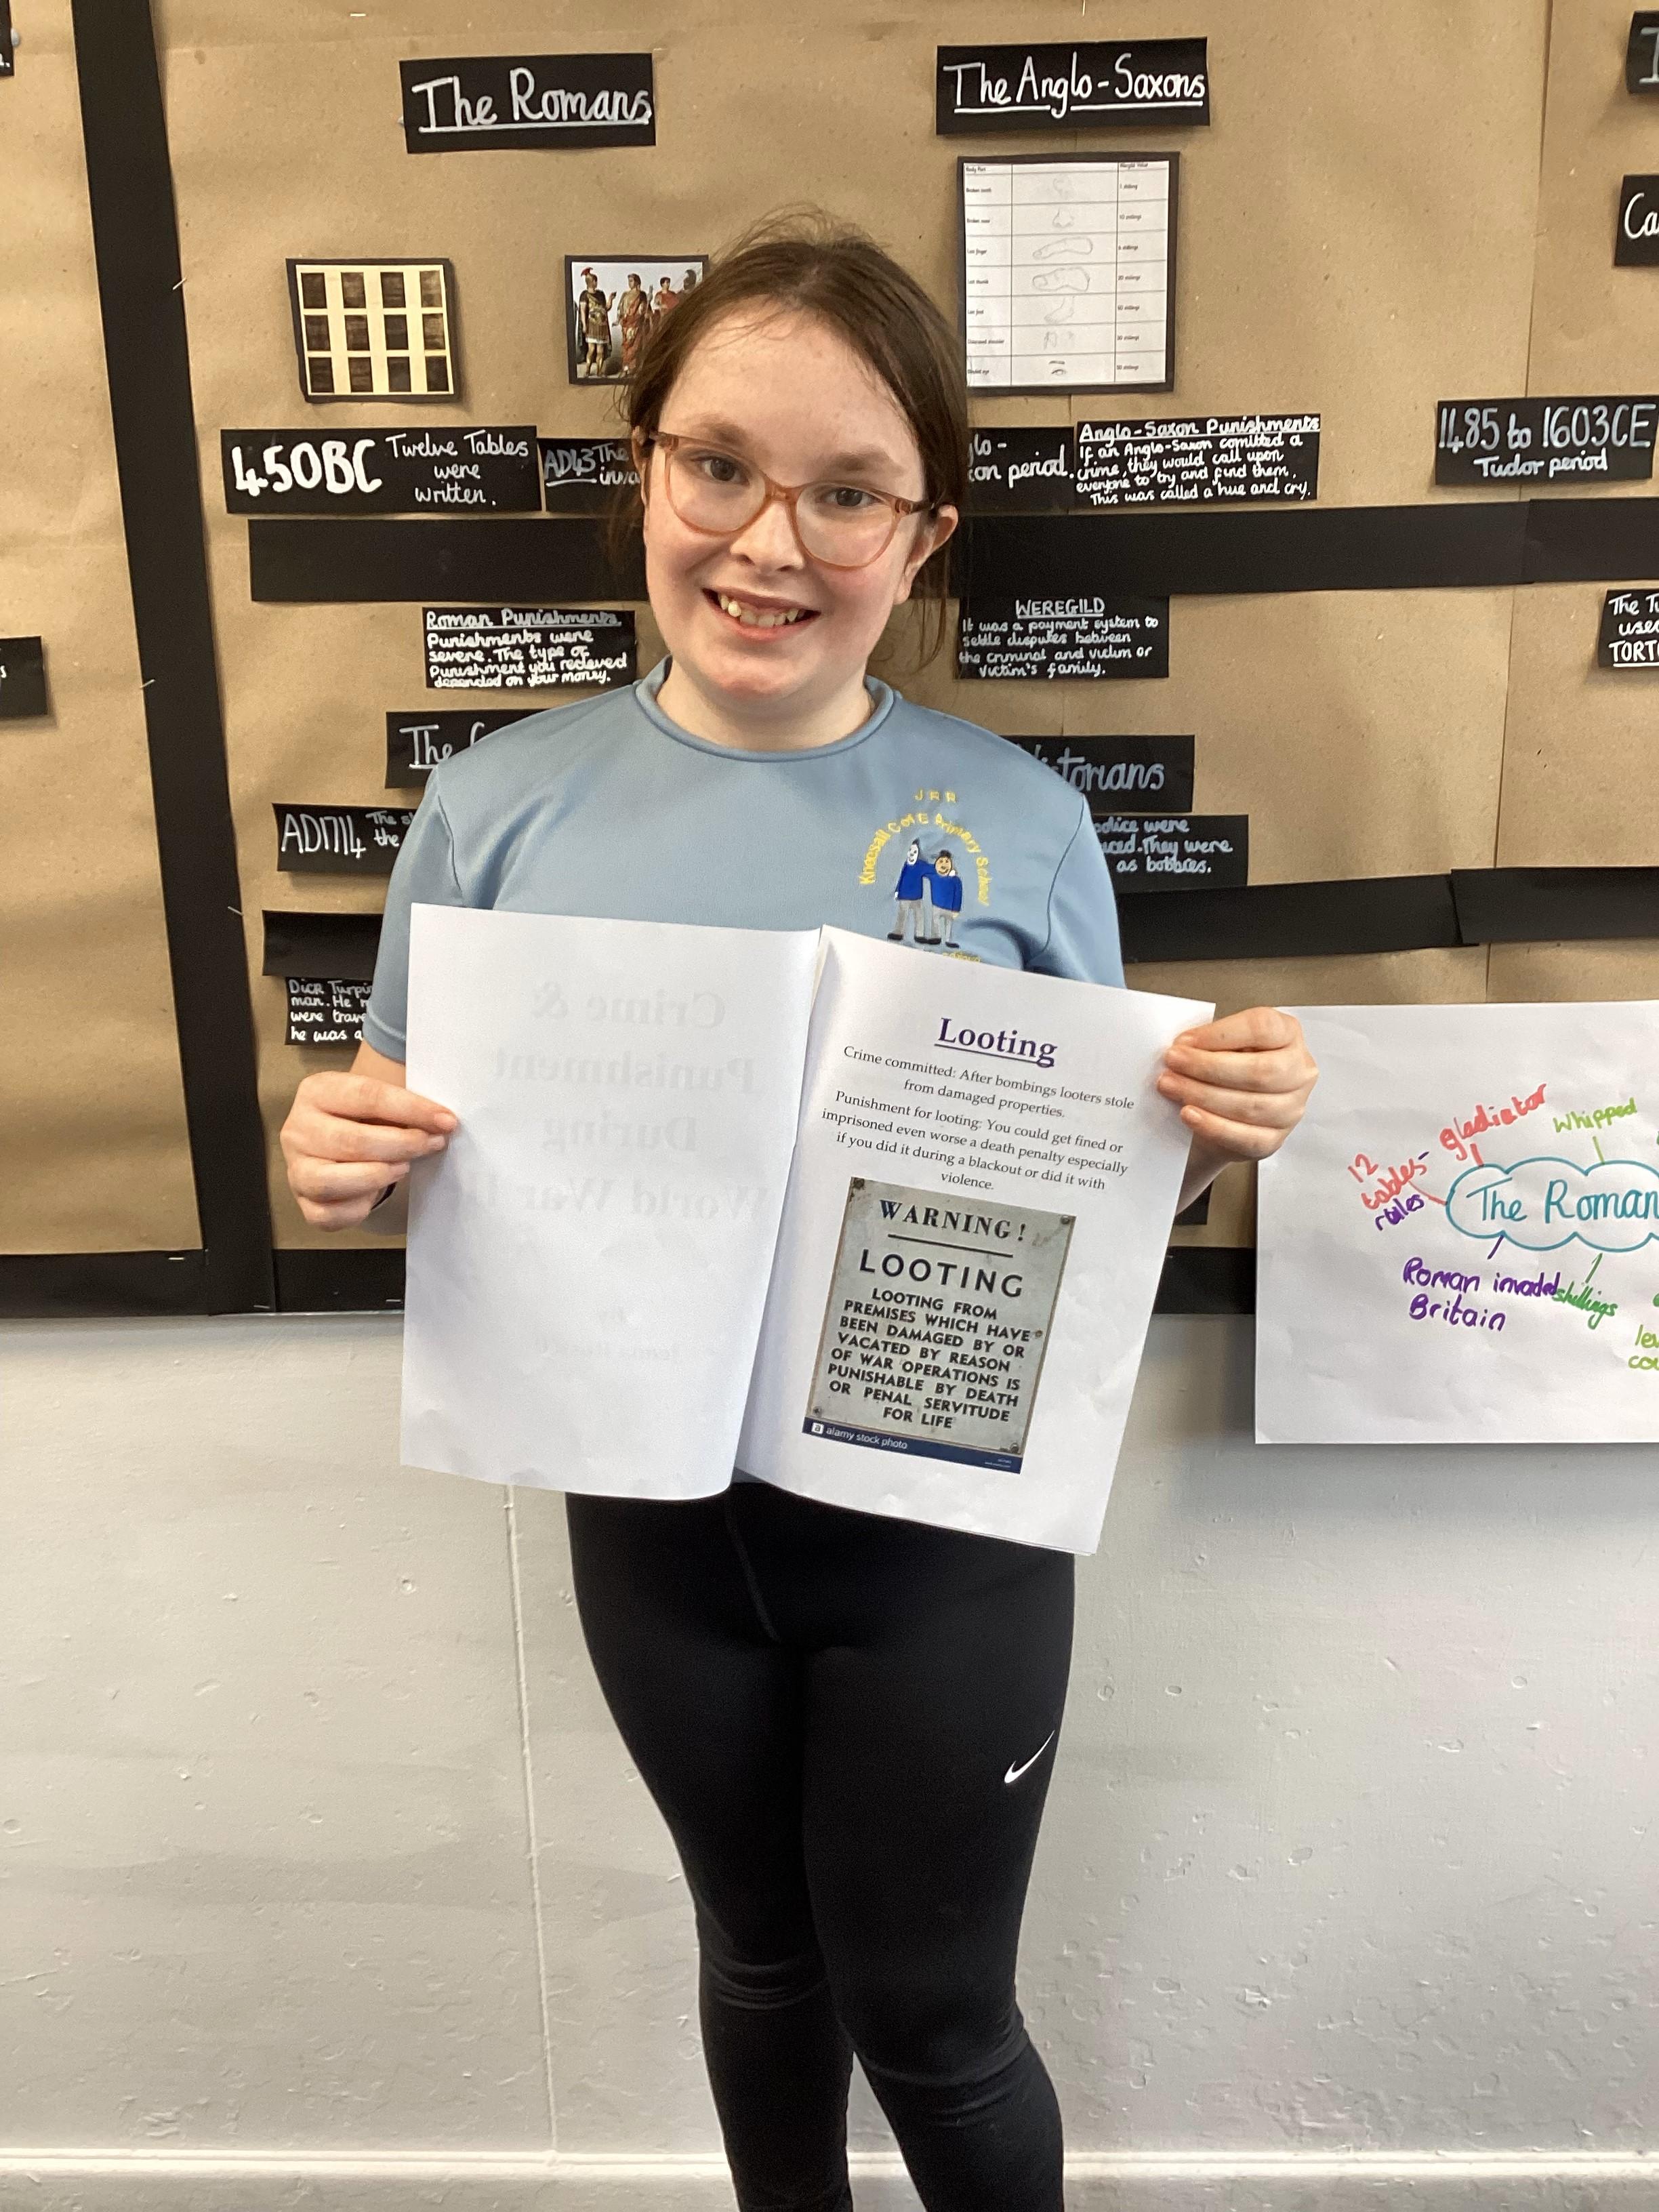 The Romans
The Anglo-Saxons
Body Part
1 shilling
Ca
450BC Twelve Tables
were
written.
AD43 The
inva
on period.
Anglo-Saxon Punishments
If an Anglo-Saxon comitted a
crime, they would call upon
everyone to try and find them.
This was called a hue and cry.
1485 to 1603CE
Tudor period
Roman Punishments
Punishments were
severe. The type of
Punishment you recieved
depended on your money.
WEREGILD
It was a payment system to
settle disputes between
the criminal and victim or
victim's family.
The Tu
use
TORT
The
torians
AD1714 The
the
olice were
ced. They were
as bobbies.
Dick Turpi
man. He
were trave
he was a
J R R
Kneesall C of E Primary School
Crime &
Punishment
During
World War
Looting
Crime committed: After bombings looters stole
from damaged properties.
Punishment for looting: You could get fined or
imprisoned even worse a death penalty especially
if you did it during a blackout or did it with
violence.
WARNING!
LOOTING
LOOTING FROM
PREMISES WHICH HAVE
BEEN DAMAGED BY OR
VACATED BY REASON
OF WAR OPERATIONS IS
PUNISHABLE BY DEATH
OR PENAL SERVITUDE
FOR LIFE
a alamy stock photo
gladiator
whipped
12
tables-
rules
The Roman
Roman invaded
Britain
shillings